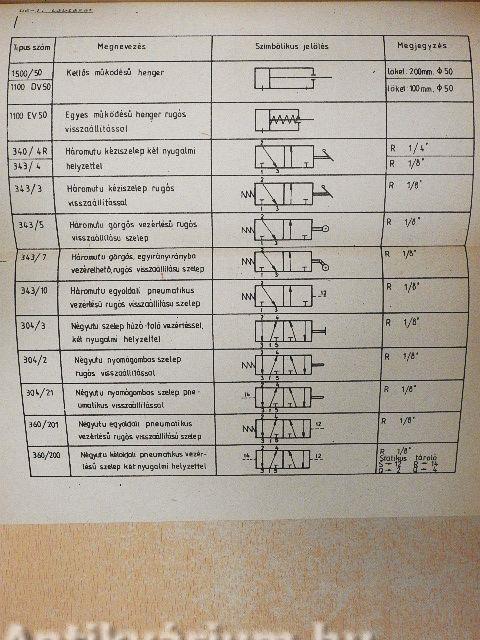 Tipus szám Megnevezés Szimbólikus jelölés Megjegyzés
1500/50 Kettős működésű henger löket: 200mm, Φ 50
1100 DV50 löket: 100mm, Φ 50
1100 EV50 Egyes működésű henger rugós
visszaállítással
340/4R Háromutu kéziszelep két nyugalmi R 1/4"
343/4 helyzettel R 1/8"
343/3 Háromutu kéziszelep rugós R 1/8"
visszaállítással
343/5 Háromutu görgős vezérlésű rugós R 1/8"
visszaállitásu szelep
343/7 Háromutu görgős, egyirányirányba R 1/8"
vezérelhető, rugós visszaállitásu szelep
343/10 Háromutu egyoldali pneumatikus 12 R 1/8"
vezérlésű rugós visszaállitásu szelep
304/3 Négyutu szelep húzó-toló vezérléssel, R 1/8"
két nyugalmi helyzettel
304/2 Négyutu nyomógombos szelep R 1/8"
rugós visszaállítással
304/21 Négyutu nyomógombos szelep pne- 14 R 1/8"
umatikus visszaállítással
360/201 Négyutu egyoldali pneumatikus 12 R 1/8"
vezérlésű rugós visszaállitásu szelep
360/200 Négyutu kétoldali pneumatikus vezér- 14 12 R 1/8"
lésű szelep két nyugalmi helyzettel Statikus tároló
S → 12 R → 14
Q → 2 Q → 4
Antikvárium.hu